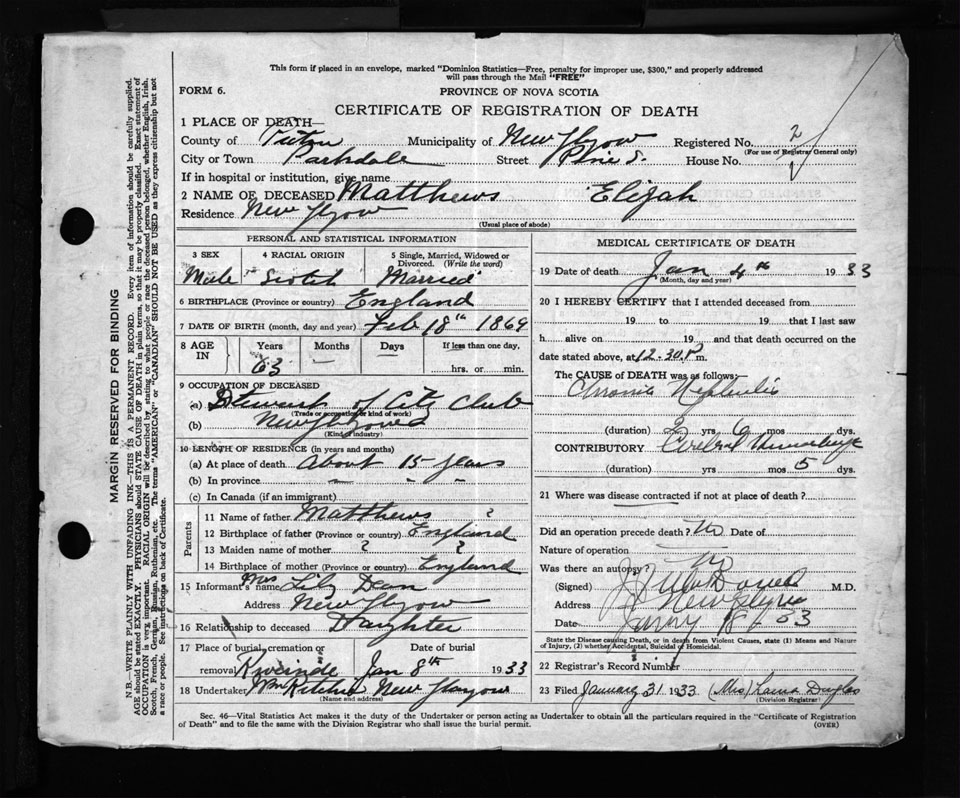 This form if placed in an envelope, marked "Dominion Statistics—Free, penalty for improper use, $300," and properly addressed
will pass through the Mail "FREE"
FORM 6.
PROVINCE OF NOVA SCOTIA
CERTIFICATE OF REGISTRATION OF DEATH
1 PLACE OF DEATH—
County of Pictou Municipality of New Glgow Registered No. 2
(For use of Registrar General only)
City or Town Parkdale Street Pine S. House No.
If in hospital or institution, give name
2 NAME OF DECEASED Matthews Elijah
Residence New Glgow
(Usual place of abode)
PERSONAL AND STATISTICAL INFORMATION
3 SEX 4 RACIAL ORIGIN 5 Single, Married, Widowed or Divorced. (Write the word)
Male Scotch Married
6 BIRTHPLACE (Province or country) England
7 DATE OF BIRTH (month, day and year) Feb 18th 1869
8 AGE IN Years Months Days If less than one day.
63 — hrs. or min.
9 OCCUPATION OF DECEASED
(a) Stewart of City Club
(Trade or occupation or kind of work)
(b) New
(Kind of industry)
10 LENGTH OF RESIDENCE (in years and months)
(a) At place of death About 15 years
(b) In province — " "
(c) In Canada (if an immigrant)
Parents
11 Name of father Matthews ?
12 Birthplace of father (Province or country) England
13 Maiden name of mother ? ?
14 Birthplace of mother (Province or country) England
15 Informant's name Mrs Lily Dean
Address New Glgow
16 Relationship to deceased Daughter
17 Place of burial, cremation or removal Date of burial
Riverside Jan 8th 1933
18 Undertaker New Glasgow
(Name and address)
MEDICAL CERTIFICATE OF DEATH
19 Date of death Jan 4th 1933
(Month, day and year)
20 I HEREBY CERTIFY that I attended deceased from
19 to 19 that I last saw
h alive on 19 and that death occurred on the
date stated above, at 12.30 P m.
The CAUSE of DEATH was as follows:
Chronic Nephritis
(duration) 2 yrs 6 mos dys.
CONTRIBUTORY Cerebral
(duration) yrs mos 5 dys.
21 Where was disease contracted if not at place of death?
Did an operation precede death? No Date of
Nature of operation
Was there an autopsy? No
(Signed) M.D.
Address
Date
State the Disease causing Death, or in death from Violent Causes, state (1) Means and Nature
of Injury, (2) whether Accidental, Suicidal or Homicidal.
22 Registrar's Record Number
23 Filed January 31 1933 (Mrs) Laura Douglas
(Division Registrar)
Sec. 46—Vital Statistics Act makes it the duty of the Undertaker or person acting as Undertaker to obtain all the particulars required in the "Certificate of Registration
of Death" and to file the same with the Division Registrar who shall issue the burial permit. (OVER)
MARGIN RESERVED FOR BINDING
N.B.—WRITE PLAINLY WITH UNFADING INK—THIS IS A PERMANENT RECORD. Every item of information should be carefully supplied.
AGE should be stated EXACTLY. PHYSICIANS should STATE CAUSE OF DEATH in plain terms, so that it may be properly classified. Exact statement of
OCCUPATION is very important. RACIAL ORIGIN will be described by stating to what people or race the deceased person belonged, whether English, Irish,
Scotch, French, German, Russian, Ruthenian, etc. The terms "AMERICAN" or "CANADIAN" SHOULD NOT BE USED as they express citizenship but not
a race or people. See instructions on back of Certificate.